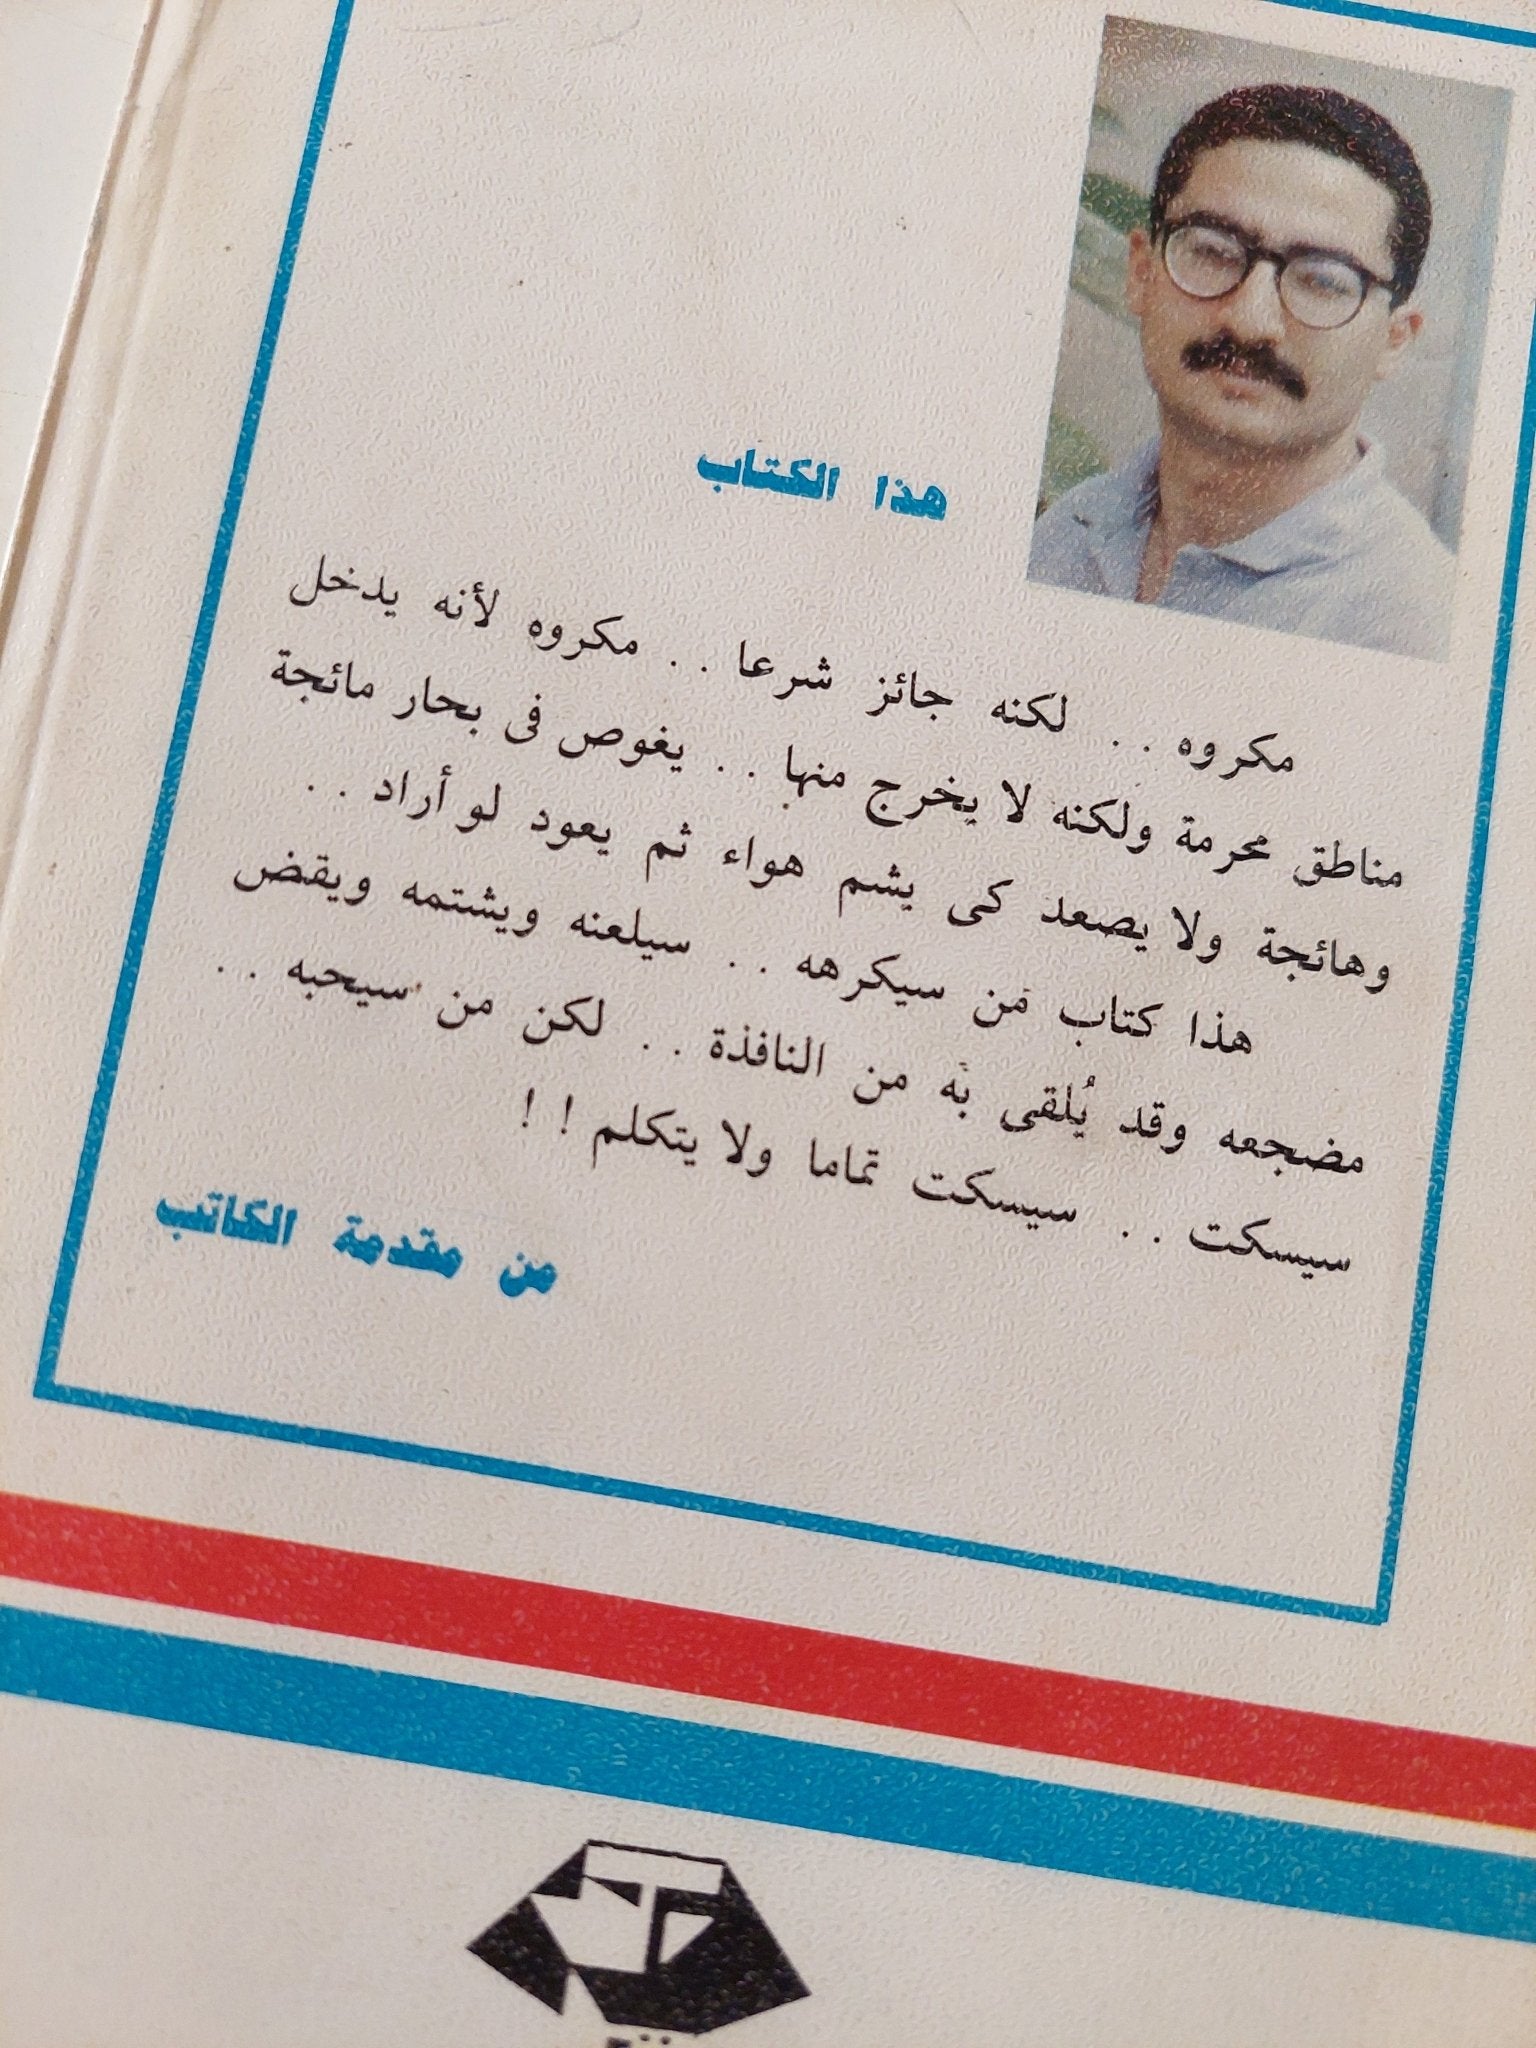 هذا الكتاب
مكروه . . لكنه جائز شرعا . . مكروه لأنه يدخل
مناطق محرمة ولكنه لا يخرج منها . . يغوص فى بحار مائجة
وهائجة ولا يصعد كى يشم هواء ثم يعود لو أراد . .
هذا كتاب مَن سيكرهه . . سيلعنه ويشتمه ويقض
مضجعه وقد يُلقى به من النافذة . . لكن من سيحبه . .
سيسكت . . سيسكت تماما ولا يتكلم ! !
من مقدمة الكاتب